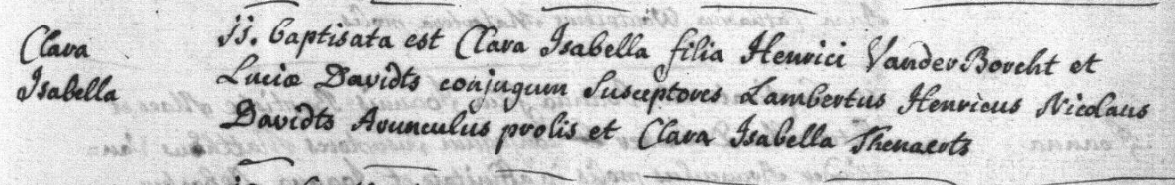 Clara
Isabella
11. baptisata est Clara Isabella filia Henrici VanderBorcht et
Luciæ Davidts conjugum Susceptores Lambertus Henricus Nicolaus
Davidts Avunculus prolis et Clara Isabella Thenaerts